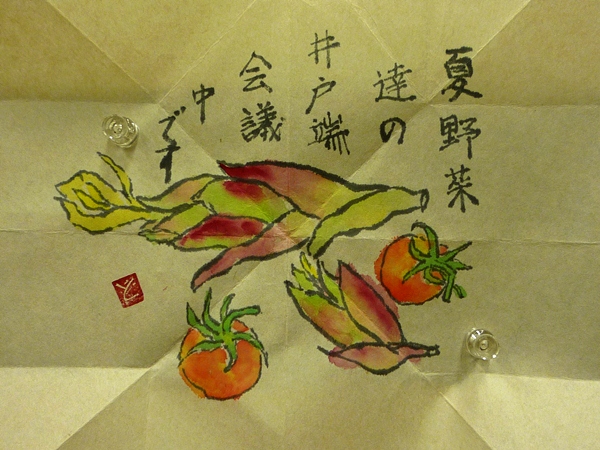 夏野菜
達の
井戸端
会議
中
です